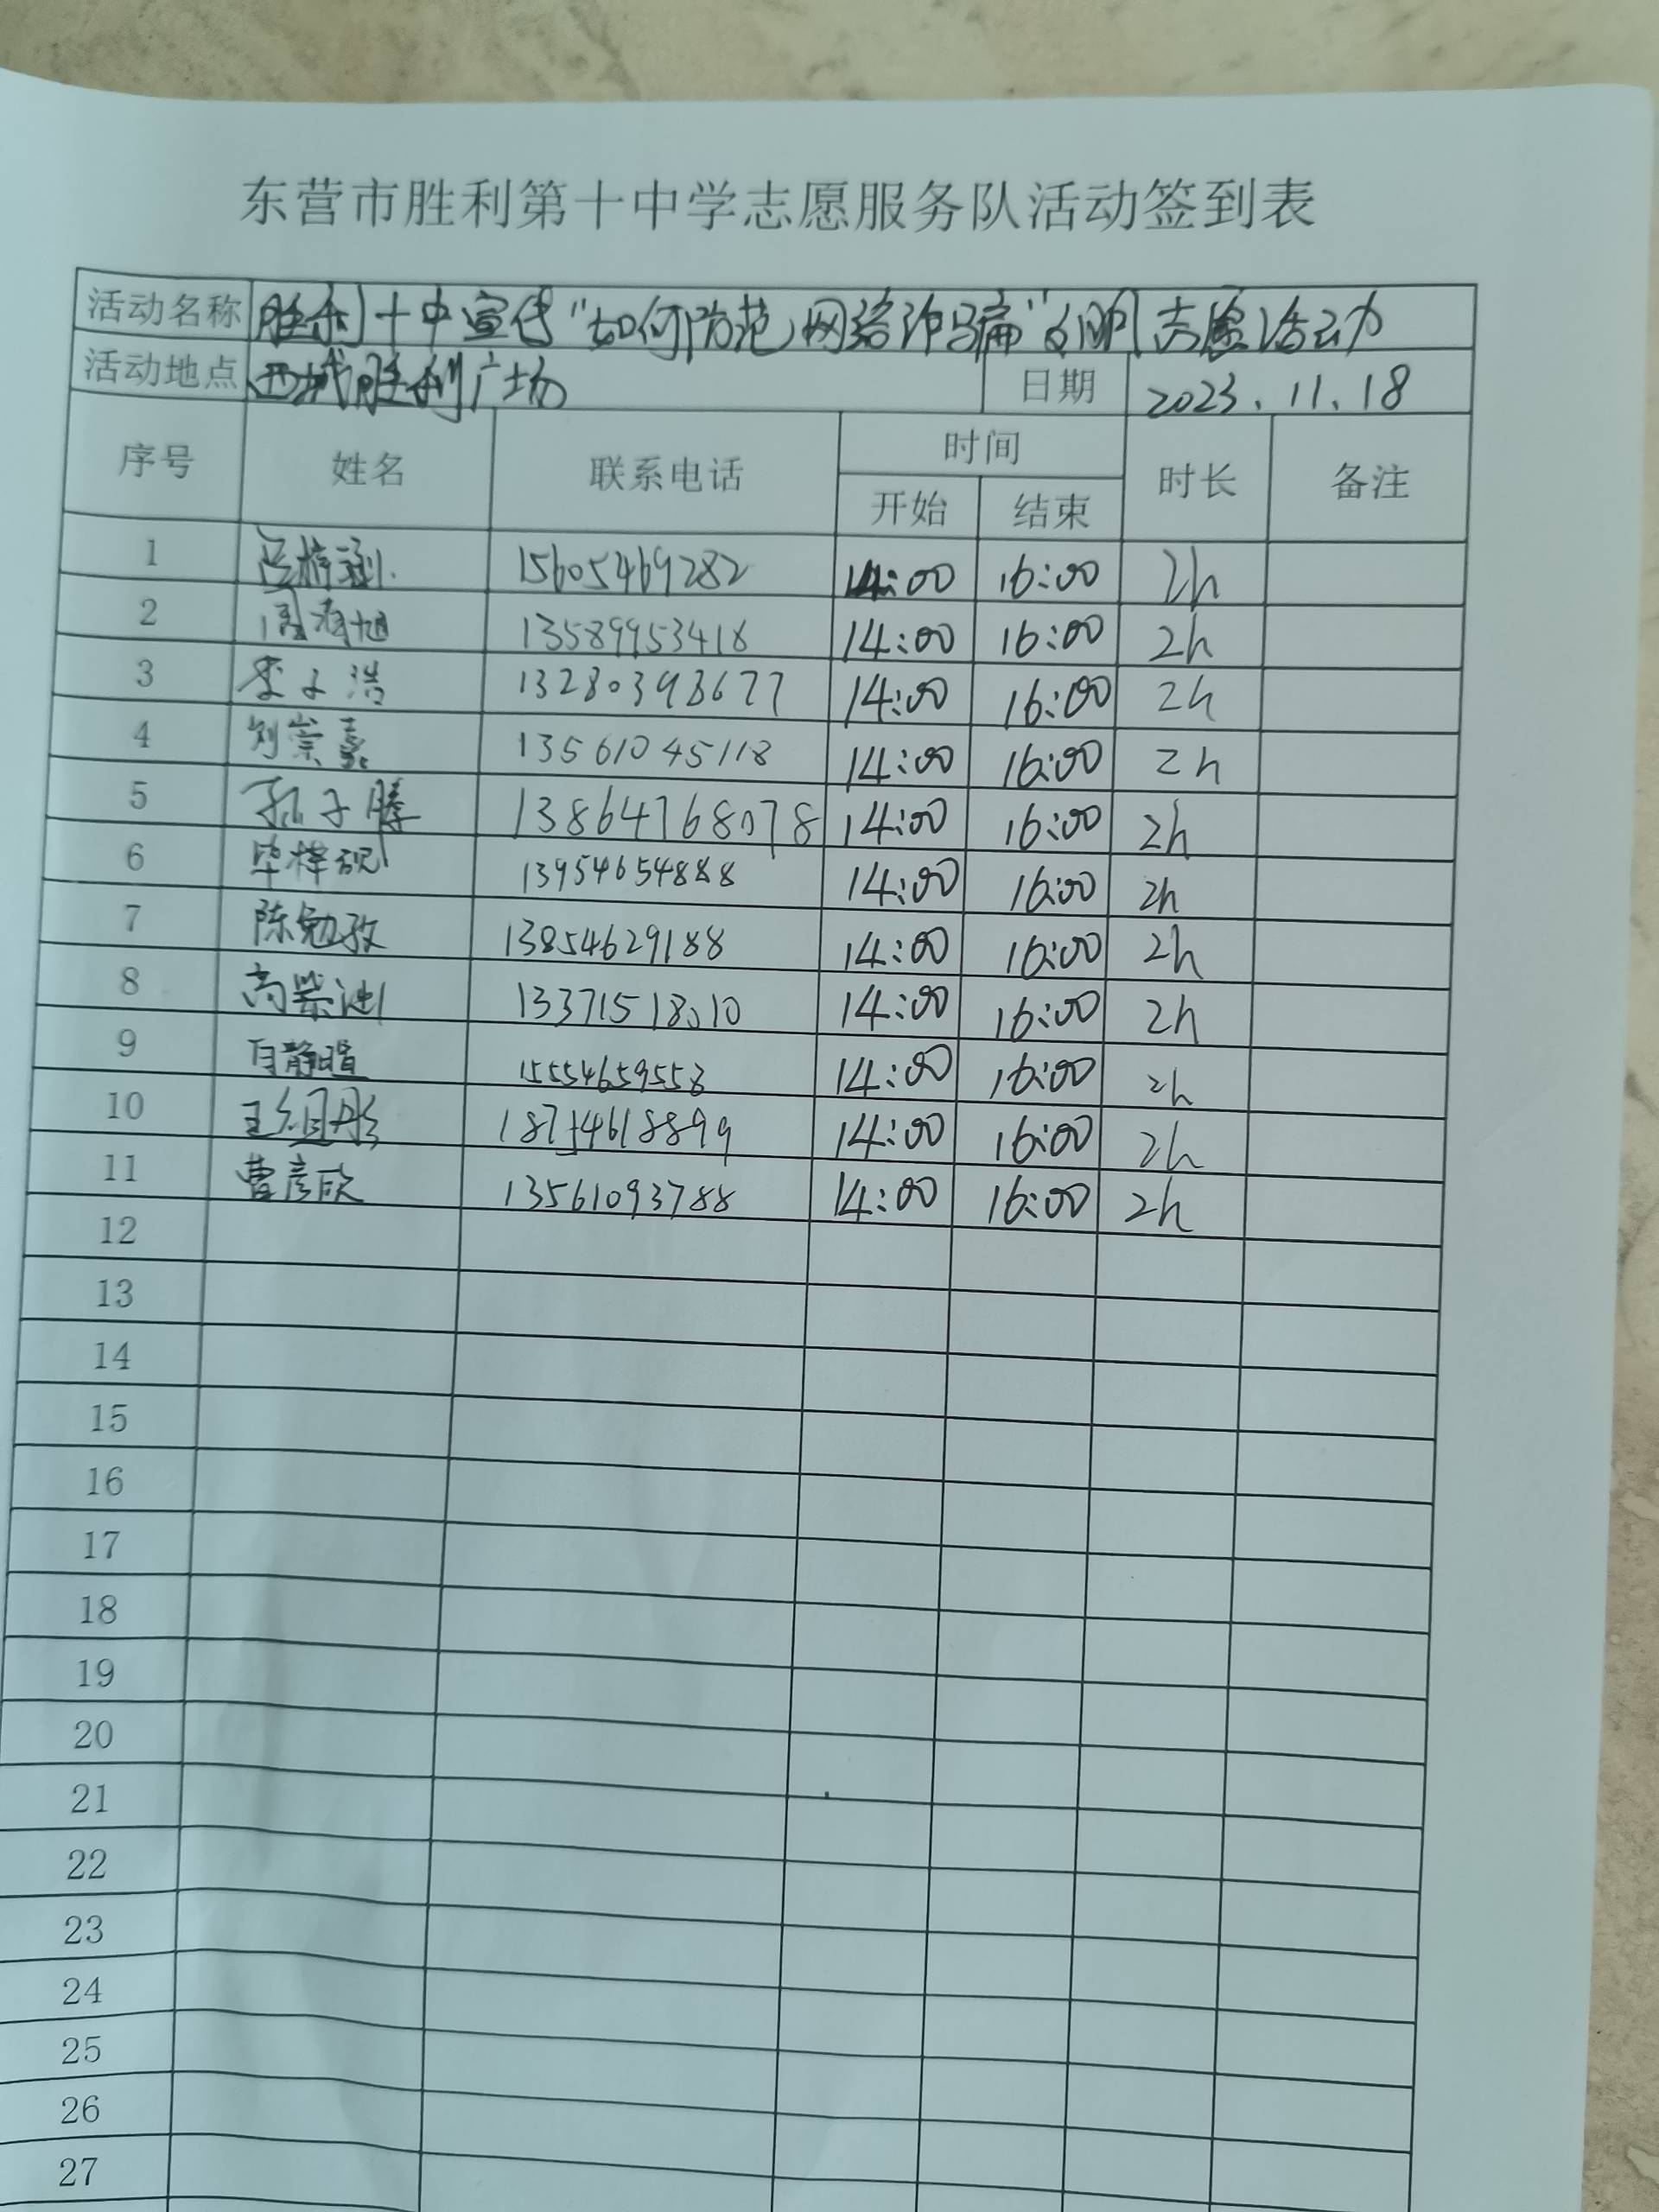 东营市胜利第十中学志愿服务队活动签到表
活动名称 胜利十中宣传“如何防范网络诈骗”文明志愿活动
活动地点 西城胜利广场 日期 2023.11.18
序号 姓名 联系电话 时间 时长 备注
开始 结束
1 15605469282 14:00 16:00 2h
2 13589953418 14:00 16:00 2h
3 李子浩 13280393677 14:00 16:00 2h
4 刘崇嘉 13561045118 14:00 16:00 2h
5 孙子腾 13864768078 14:00 16:00 2h
6 毕梓砚 13954654888 14:00 16:00 2h
7 陈勉孜 13854629188 14:00 16:00 2h
8 高紫迪 13371518010 14:00 16:00 2h
9 15554659558 14:00 16:00 2h
10 王组彤 18754618899 14:00 16:00 2h
11 曹彦欣 13561093788 14:00 16:00 2h
12
13
14
15
16
17
18
19
20
21
22
23
24
25
26
27